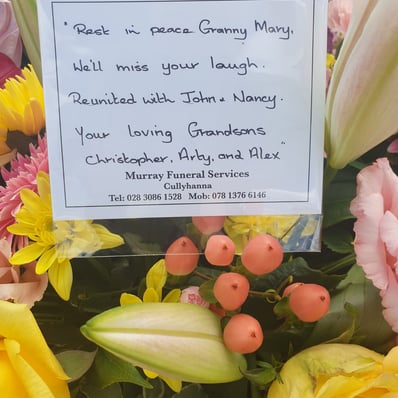 "Rest in peace Granny Mary,
We'll miss your laugh.
Reunited with John & Nancy.
Your loving Grandsons
Christopher, Arty, and Alex"
Murray Funeral Services
Cullyhanna
Tel: 028 3086 1528 Mob: 078 1376 6146